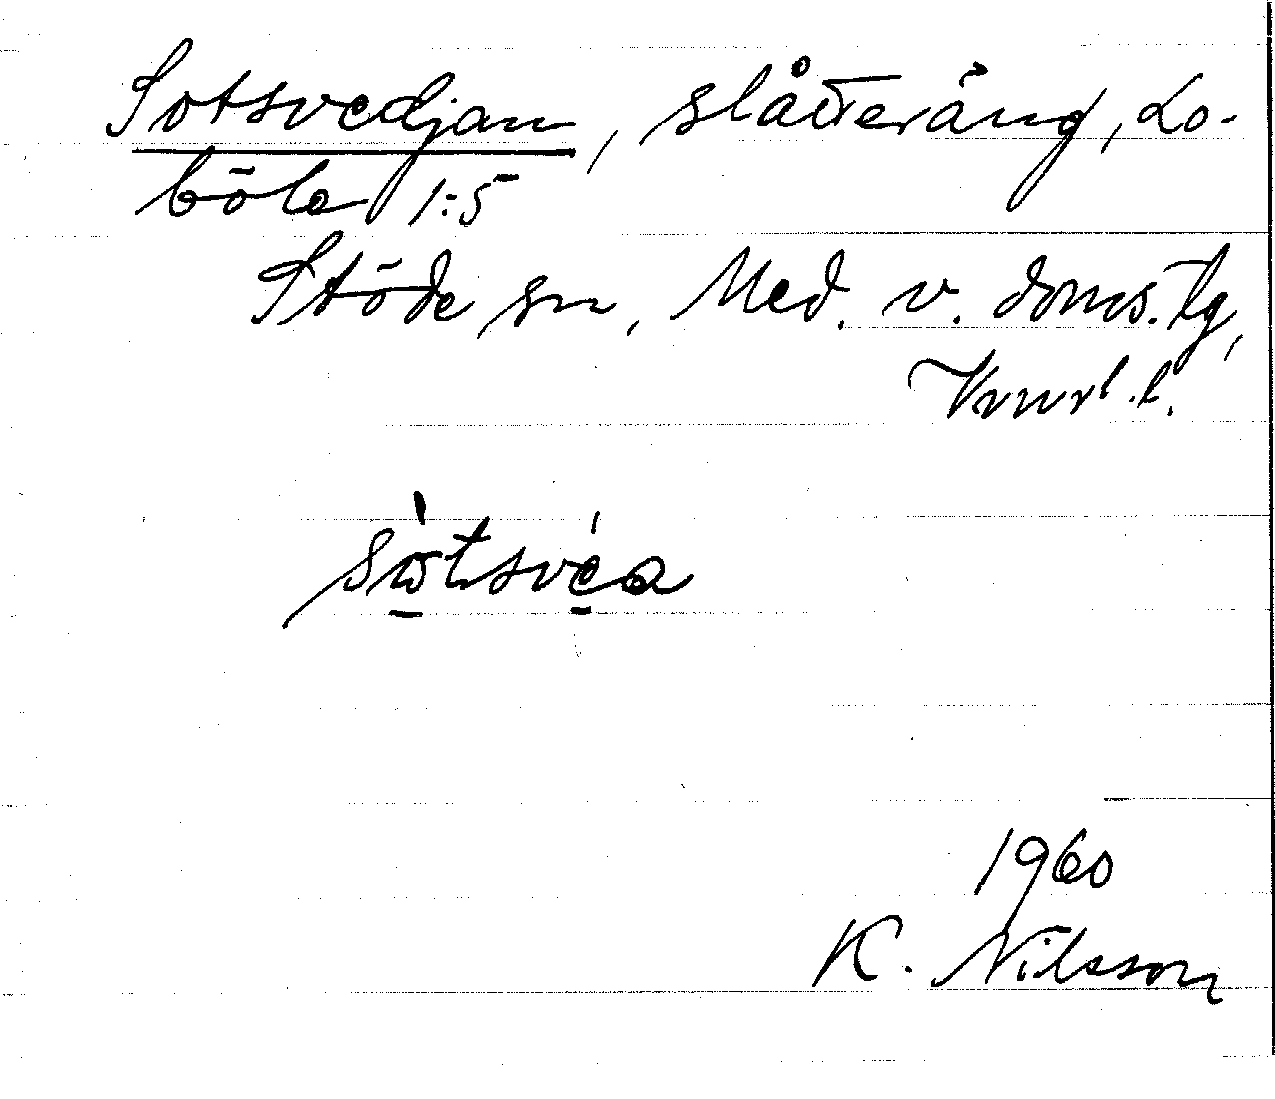 Sotsvedjan, slåtteräng, Lo-
böle 1:5
Stöde sn, Med. v. doms. tg,
Vrnrl. l.
sò̱tsvé̱a
1960
K. Nilsson